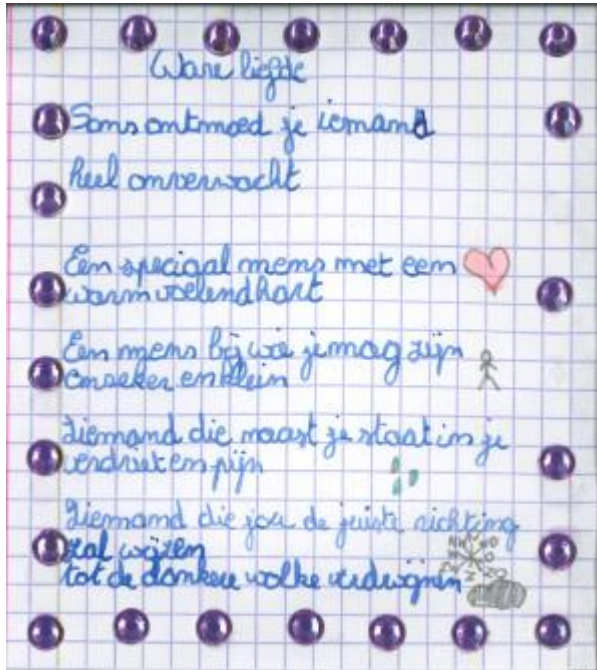 Ware liefde
Soms ontmoed je iemand
heel onverwacht
Een speciaal mens met een
warm voelend hart
Een mens bij wie je mag zijn
onzeker en klein
Iemand die naast je staat in je
verdriet en pijn
Iemand die jou de juiste richting
zal wijzen
tot de donkere wolke verdwijnen